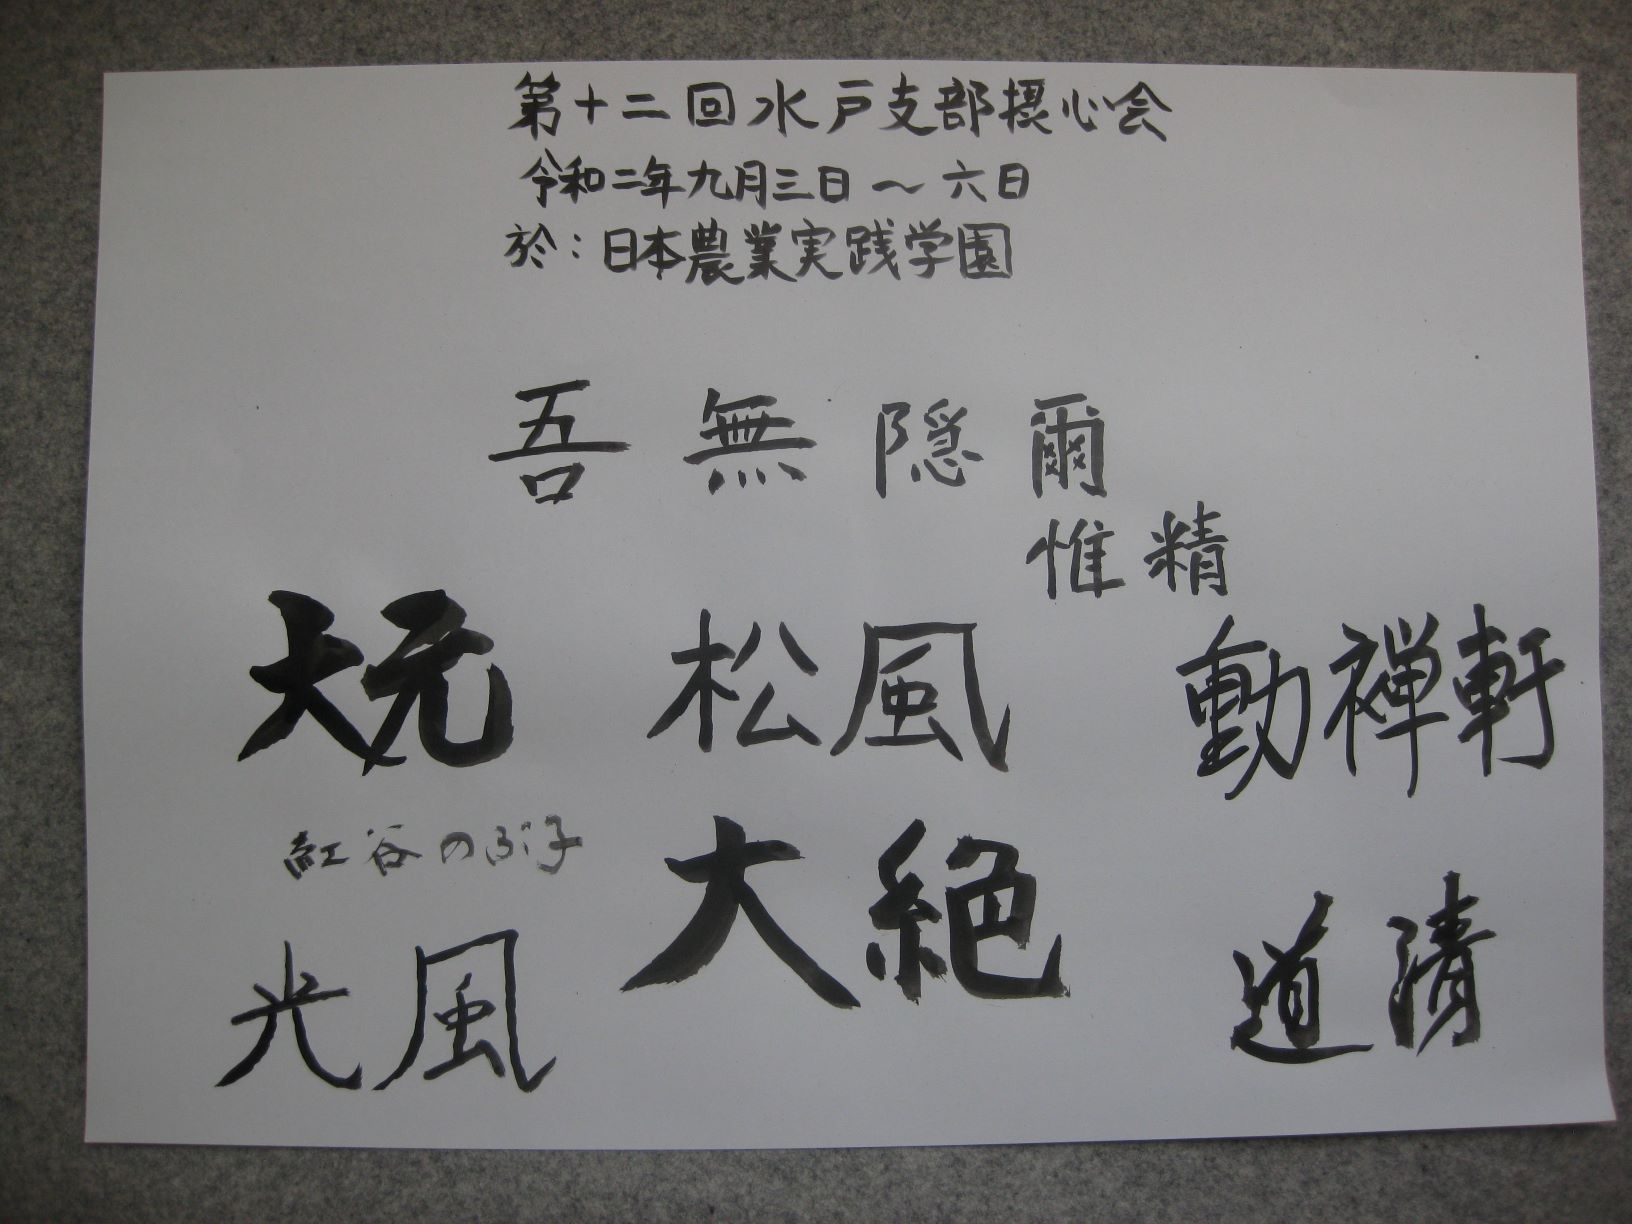 第十二回水戸支部摂心会
令和二年九月三日～六日
於：日本農業実践学園
吾無隠爾
惟精
大元
松風
動禅軒
紅谷のぶ子
大絶
道清
光風